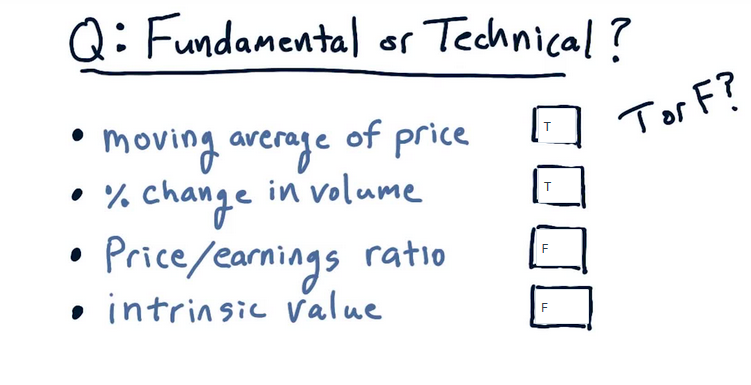 Q: Fundamental or Technical?
T or F?
• moving average of price T
• % change in volume T
• Price/earnings ratio F
• intrinsic value F